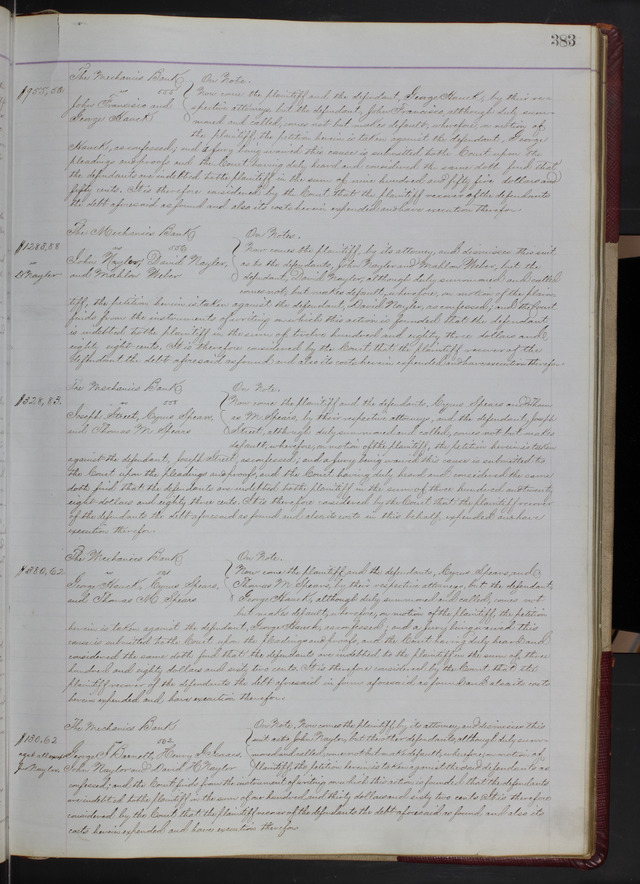 383
The Mechanics Bank On Note.
$955,50. vs Now come the plaintiff and the defendant, George Hauck, by their re-
John Francisco and spective attorneys but the defendant, John Francisco, although duly sum-
George Hauck moned and called, comes not but makes default, wherefore, on motion of
the plaintiff, the petition herein is taken against the defendant, George
Hauck, as confessed; and a jury being waived this cause is submitted to the Court upon the
pleadings and proofs and the Court having duly heard and considered the same doth find that
the defendants are indebted to the plaintiff in the sum of nine hundred and fifty five dollars and
fifty cents. It is therefore considered by the Court that the plaintiff recover of the defendants
the debt aforesaid as found and also its costs herein expended and have execution therefor.
The Mechanics Bank On Note.
$1283,88 vs 556 Now comes the plaintiff by its attorney, and dismisses this suit
John Naylor, David Naylor, as to the defendants, John Naylor and Mahlon Weber, but the
D Naylor and Mahlon Weber defendant, David Naylor, although duly summoned and called
comes not, but makes default, wherefore, on motion of the plain-
tiff, the petition herein is taken against the defendant, David Naylor, as confessed; and the Court
finds from the instruments of writing on which this action is founded that the defendant
is indebted to the plaintiff in the sum of twelve hundred and eighty three dollars and
eighty eight cents. It is therefore considered by the Court that the plaintiff recover of the
defendant the debt aforesaid as found and also its costs herein expended and have execution therefor
The Mechanics Bank On Note.
$328,83. vs 558 Now come the plaintiff and the defendants, Cyrus Spears and Thom-
Joseph Street, Cyrus Spears as M. Spears, by their respective attorneys and the defendant, Joseph
and Thomas M Spears Street, although duly summoned and called, comes not but makes
default, wherefore, on motion of the plaintiff, the petition herein is taken
against the defendant, Joseph Street, as confessed; and a jury being waived this cause is submitted to
the Court upon the pleadings and proofs, and the Court having duly heard and considered the same
doth find that the defendants are indebted to the plaintiff in the sum of three hundred and twenty
eight dollars and eighty three cents. It is therefore considered by the Court that the plaintiff recover
of the defendants the debt aforesaid as found and also its costs in this behalf expended and have
execution therefor.
The Mechanics Bank On Note.
$380,62 vs Now come the plaintiff and the defendants, Cyrus Spears, and
George Hauck, Cyrus Spears, Thomas M Spears, by their respective attorneys, but the defendant,
and Thomas M Spears George Hauck, although duly summoned and called, comes not
but makes default, wherefore, on motion of the plaintiff, the petition
herein is taken against the defendant, George Hauck, as confessed; and a jury being waived this
cause is submitted to the Court upon the pleadings and proofs, and the Court having duly heard and
considered the same doth find that the defendants are indebted to the plaintiff in the sum of three
hundred and eighty dollars and sixty two cents. It is therefore considered by the Court that the
plaintiff recover of the defendants the debt aforesaid in form aforesaid as found and also its costs
herein expended and have execution therefor.
The Mechanics Bank On Note. Now comes the plaintiff by its attorney and dismisses this
$130,62 vs 562 suit as to John Naylor, but the other defendants, although duly sum-
George S Barnett, Henry G. moned and called, come not but make default, wherefore, on motion of
Jno Naylor. John Naylor and David H Naylor plaintiff, the petition herein is taken against the said defendants as
confessed; and the Court finds from the instruments of writing on which this action is founded that the defendants
are indebted to the plaintiff in the sum of one hundred and thirty dollars and sixty two cents. It is therefore
considered by the Court that the plaintiff recover of the defendants the debt aforesaid as found and also its
costs herein expended and have execution therefor.